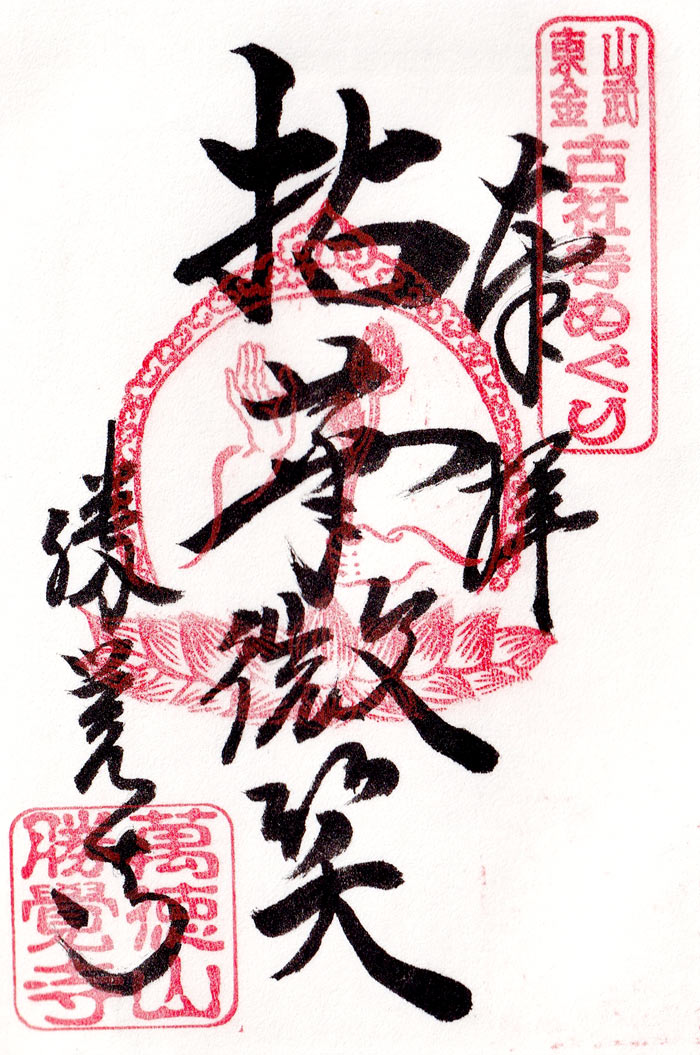 山武
東金
古社寺めぐり
奉拝
拈華微笑
勝覚寺
萬徳山
勝覺寺